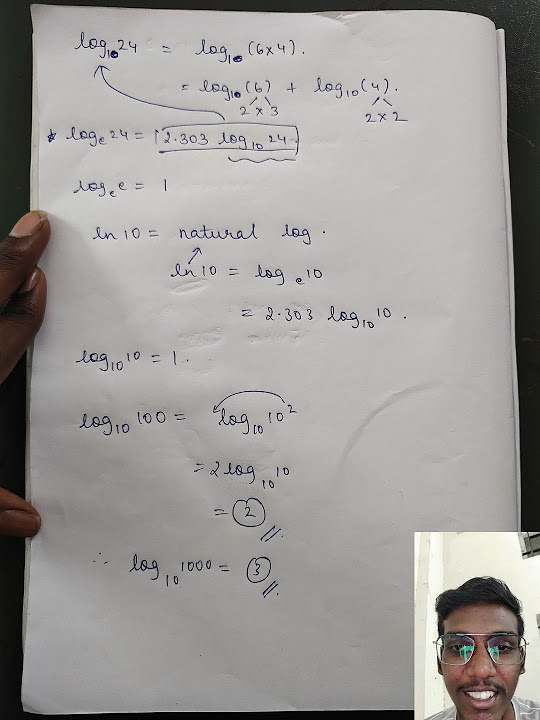 log₁₀24 = log₁₀(6×4).
= log₁₀(6) + log₁₀(4).
2 × 3 2 × 2
* logₑ24 = 2.303 log₁₀24
logₑe = 1
ln 10 = natural log.
ln 10 = logₑ10
= 2.303 log₁₀10.
log₁₀10 = 1.
log₁₀100 = log₁₀10²
= 2 log₁₀10
= 2 //.
∴ log₁₀1000 = 3 //.